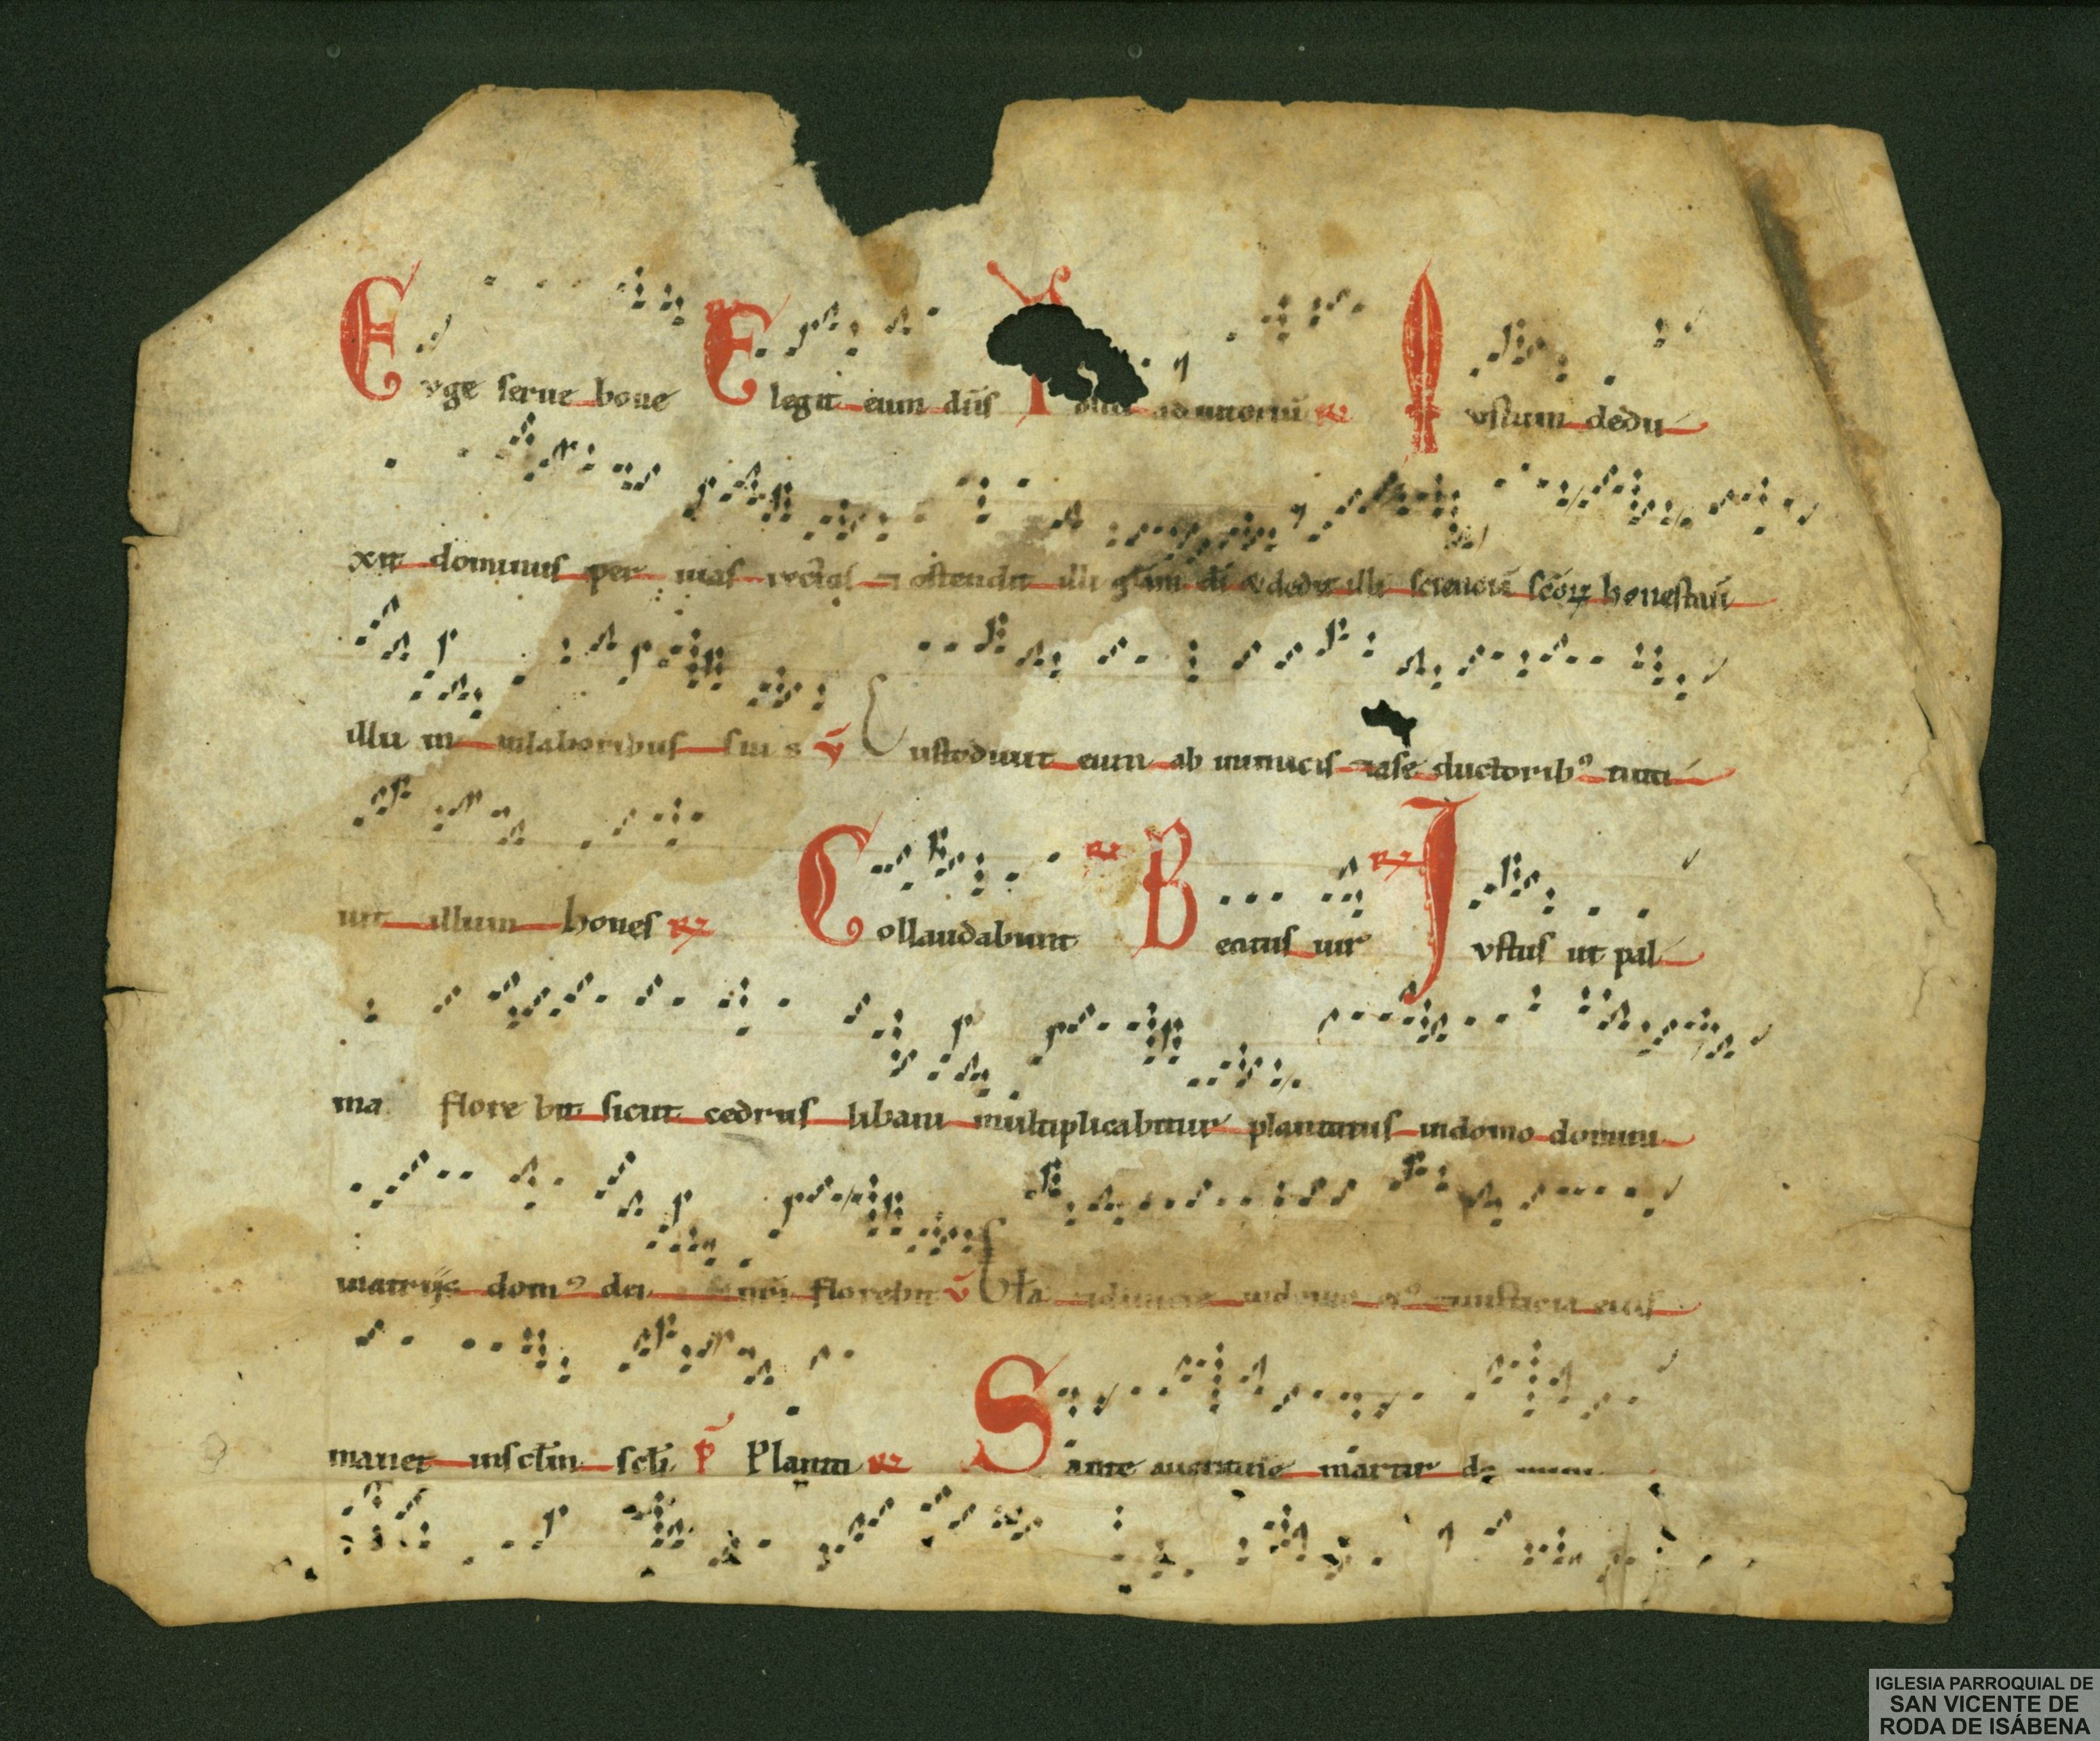 Euge serue bone Elegit eum dn̄s Posui adiutoriū R̷ Iustum dedu
xit dominus per uias rectas ⁊ ostendit illi gl̄am dī & dedit illi scienciā sc̄oꝝ honestauit
illu m inlaboribus suis v̄ Custodiuit eum ab inimicis ⁊ase ductorib⁹ tuta
uit illum hones R̷ Collaudabunt R̷ Beatus uir R̷ Iustus ut pal
ma flore bit sicut cedrus libani multiplicabitur plantatus indomo domini
inatrijs dom⁹ dei florebit v̄ iusticia eius
manet insc̄lm sc̄li P̄ Planta R̷ Sancte martir
IGLESIA PARROQUIAL DE
SAN VICENTE DE
RODA DE ISÁBENA